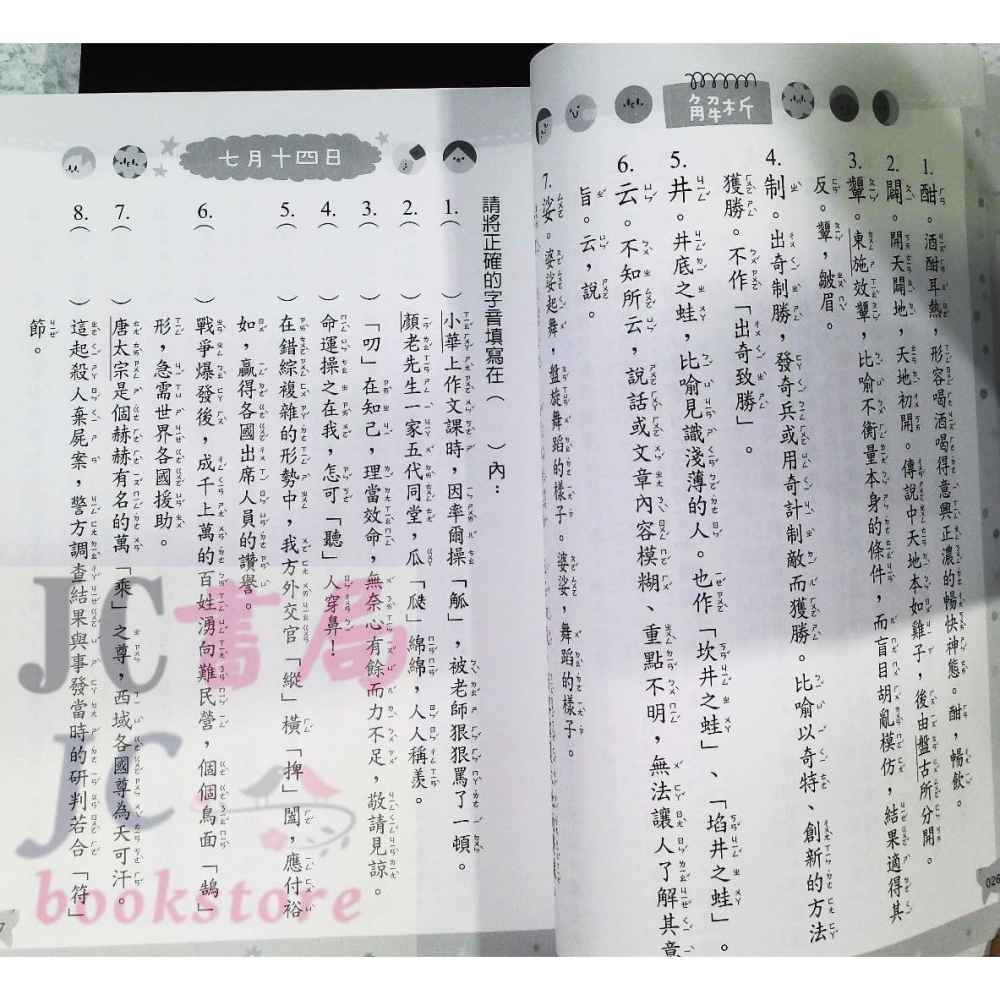 解析
1. 酣。酒酣耳熱，形容喝酒喝得意興正濃的暢快神態。酣，暢飲。
2. 闢。開天闢地，天地初開。傳說中天地本如雞子，後由盤古所分開。
3. 顰。東施效顰，比喻不衡量本身的條件，而盲目胡亂模仿，結果適得其
反。顰，皺眉。
4. 制。出奇制勝，發奇兵或用奇計制敵而獲勝。比喻以奇特、創新的方法
獲勝。不作「出奇致勝」。
5. 井。井底之蛙，比喻見識淺薄的人。也作「坎井之蛙」、「埳井之蛙」。
6. 云。不知所云，說話或文章內容模糊、重點不明，無法讓人了解其意
旨。云，說。
7. 娑。婆娑起舞，盤旋舞蹈的樣子。婆娑，舞蹈的樣子。
026
七月十四日
請將正確的字音填寫在（ ）內：
1.（ ）小華上作文課時，因率爾操「觚」，被老師狠狠罵了一頓。
2.（ ）顏老先生一家五代同堂，瓜「瓞」綿綿，人人稱羨。
3.（ ）「叨」在知己，理當效命，無奈心有餘而力不足，敬請見諒。
4.（ ）命運操之在我，怎可「聽」人穿鼻！
5.（ ）在錯綜複雜的形勢中，我方外交官「縱」橫「捭」闔，應付裕
如，贏得各國出席人員的讚譽。
6.（ ）戰爭爆發後，成千上萬的百姓湧向難民營，個個鳥面「鵠」
形，急需世界各國援助。
7.（ ）唐太宗是個赫赫有名的萬「乘」之尊，西域各國尊為天可汗。
8.（ ）這起殺人棄屍案，警方調查結果與事發當時的研判若合「符」
節。
7
JC書局
JC
bookstore